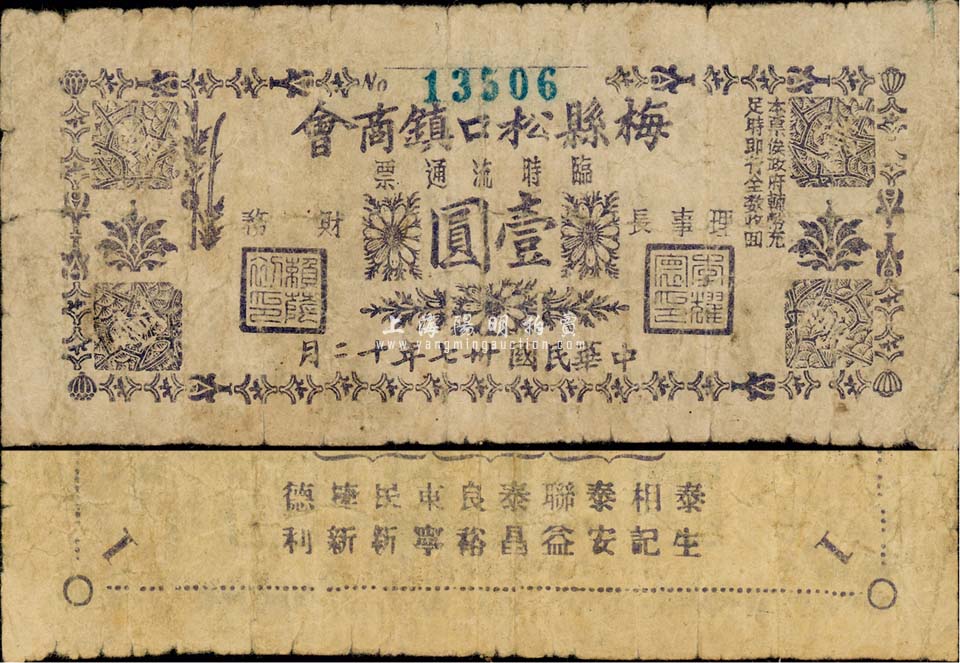 No 13506
梅縣松口鎮商會
臨時流通票
本票俟政府輔幣充
足時即行全數收回
壹圓
理事長
財務
李耀寰印
中華民國卅七年十二月
上海陽明拍賣
www.yangmingauction.com
泰生 相記 泰安 聯益 泰昌 良裕 東寧 民新 建新 德利
1
1